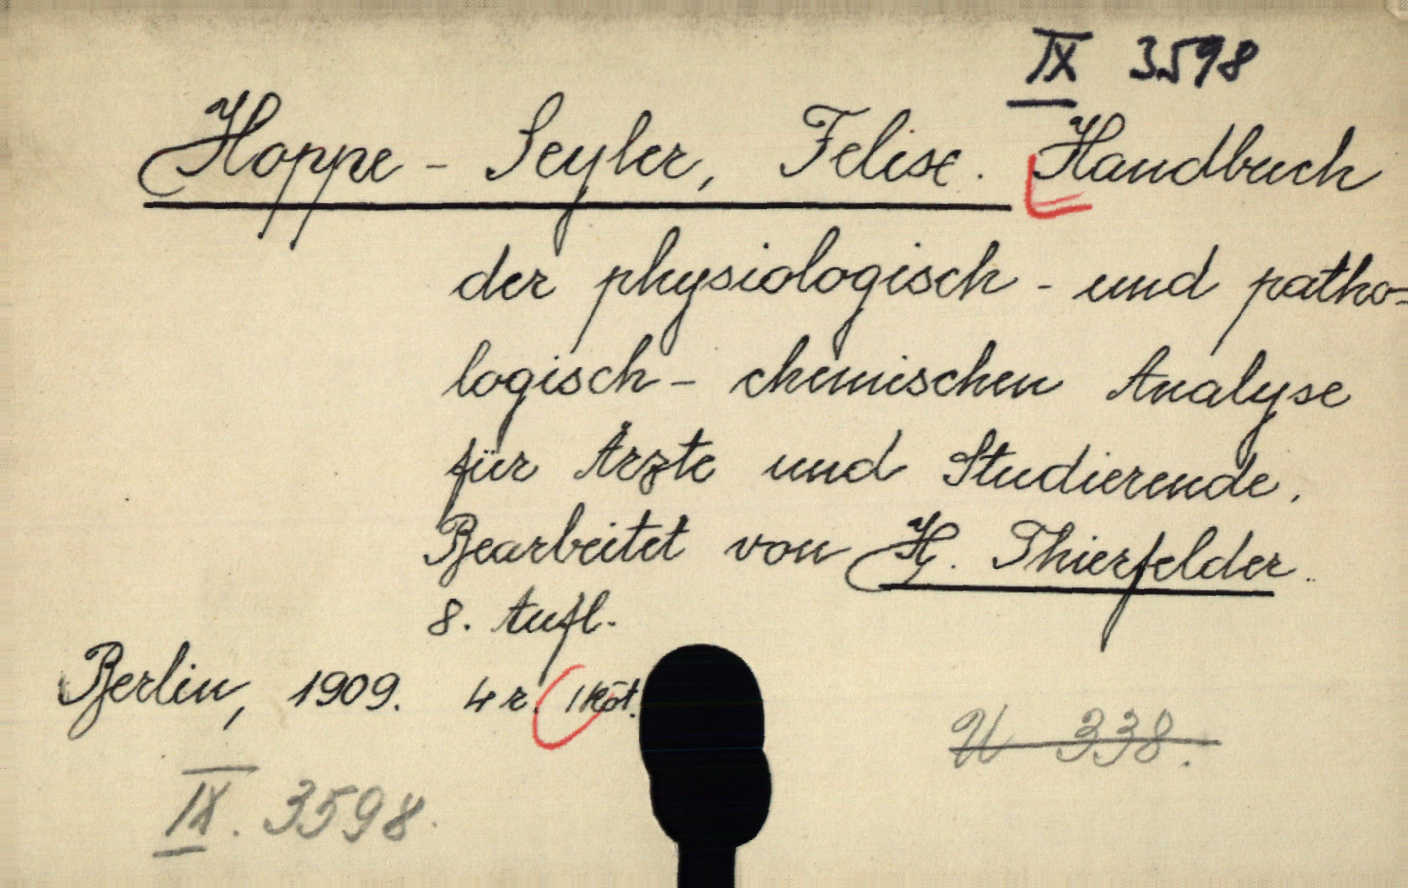 IX 3598
Hoppe - Seyler, Felix. Handbuch
der physiologisch - und patho=
logisch - chemischen Analyse
für Ärzte und Studierende.
Bearbeitet von H. Thierfelder.
8. Aufl.
Berlin, 1909. 4 r. 1 köt.
U 338.
IX. 3598.